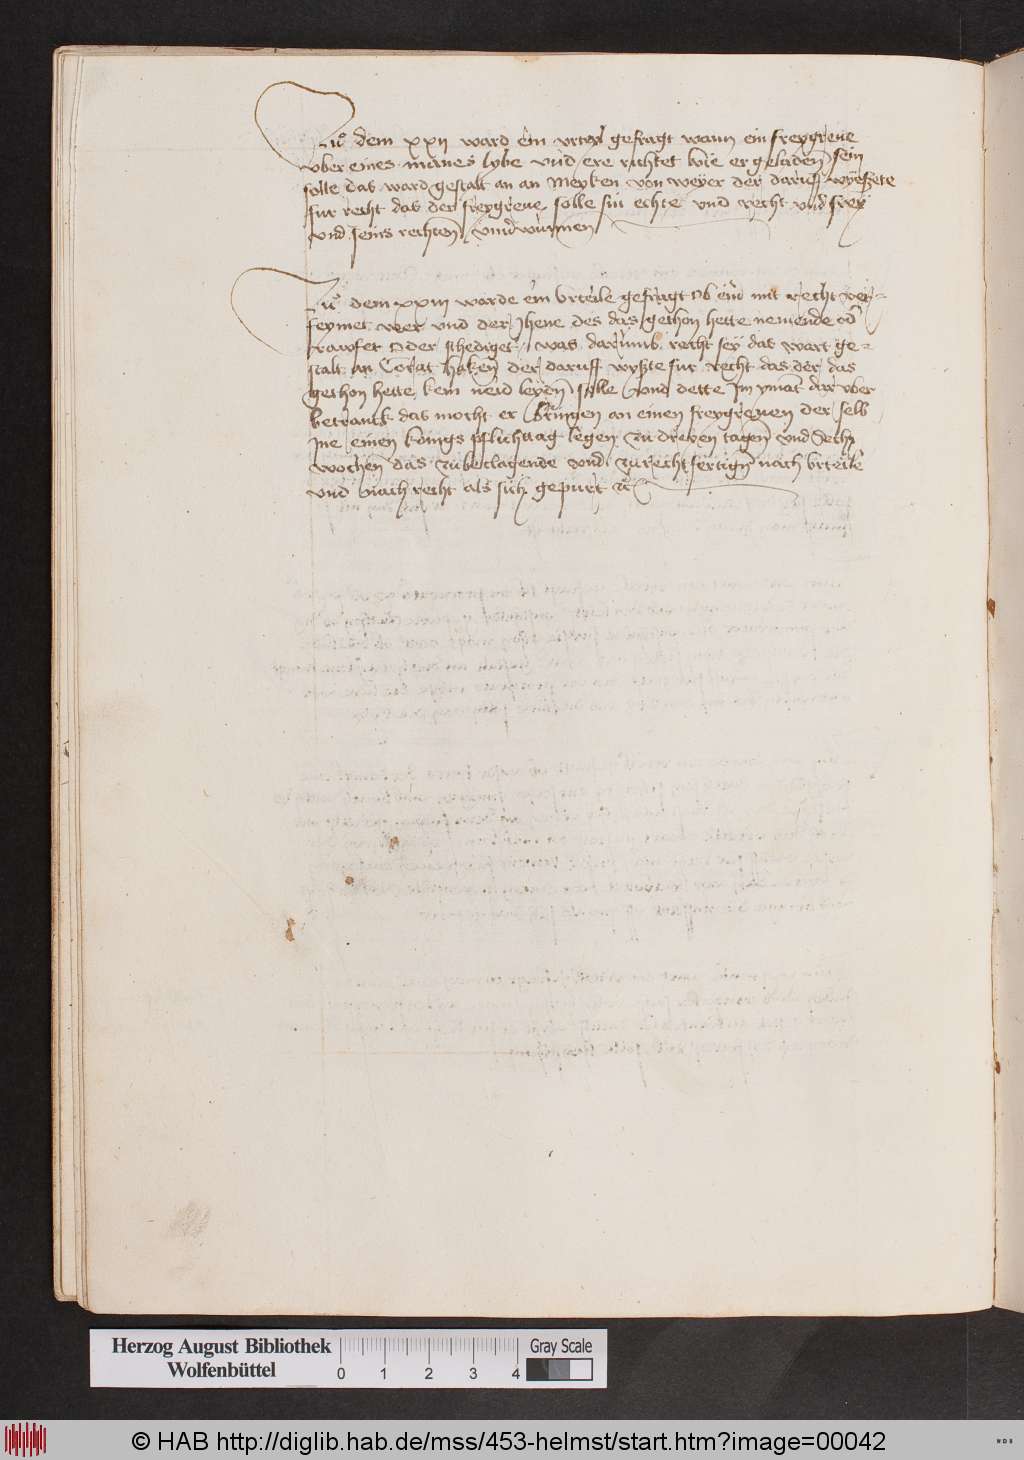 Zů dem xxij ward ein vrteyl gefragt wann ein freygreue
vber eines mānes lybe vnd ere richtet wie er geladen sein
solle das ward gestalt an an Meyken von weyer der daruff wyeszete
fur recht das der freygreue solle sin echte vnd recht vnd frey
vnd seins rechten
Zů dem xxiij warde ein vrteile gefragt Ob ein mit recht ver=
feymet were vnd der Jhene des das gethon hette nemende od
rawfet oder schediget was darumb recht sey das wart ge=
stalt an Corat haken der daruff wyszte fur recht das der das
gethon hette kein neid leydn solle vnd dette Im ymāt dar vber
betranck das mocht er bringen an einen freygreuen der solt
Ine einen konigs pflichttag legen zu dreyen tagen vnd sechs
wochen das zubeclagende vnd zurecht fertign nach vrteile
vnd nach recht als sich gepurt zc
Herzog August Bibliothek
Wolfenbüttel
0 1 2 3 4
Gray Scale
© HAB http://diglib.hab.de/mss/453-helmst/start.htm?image=00042